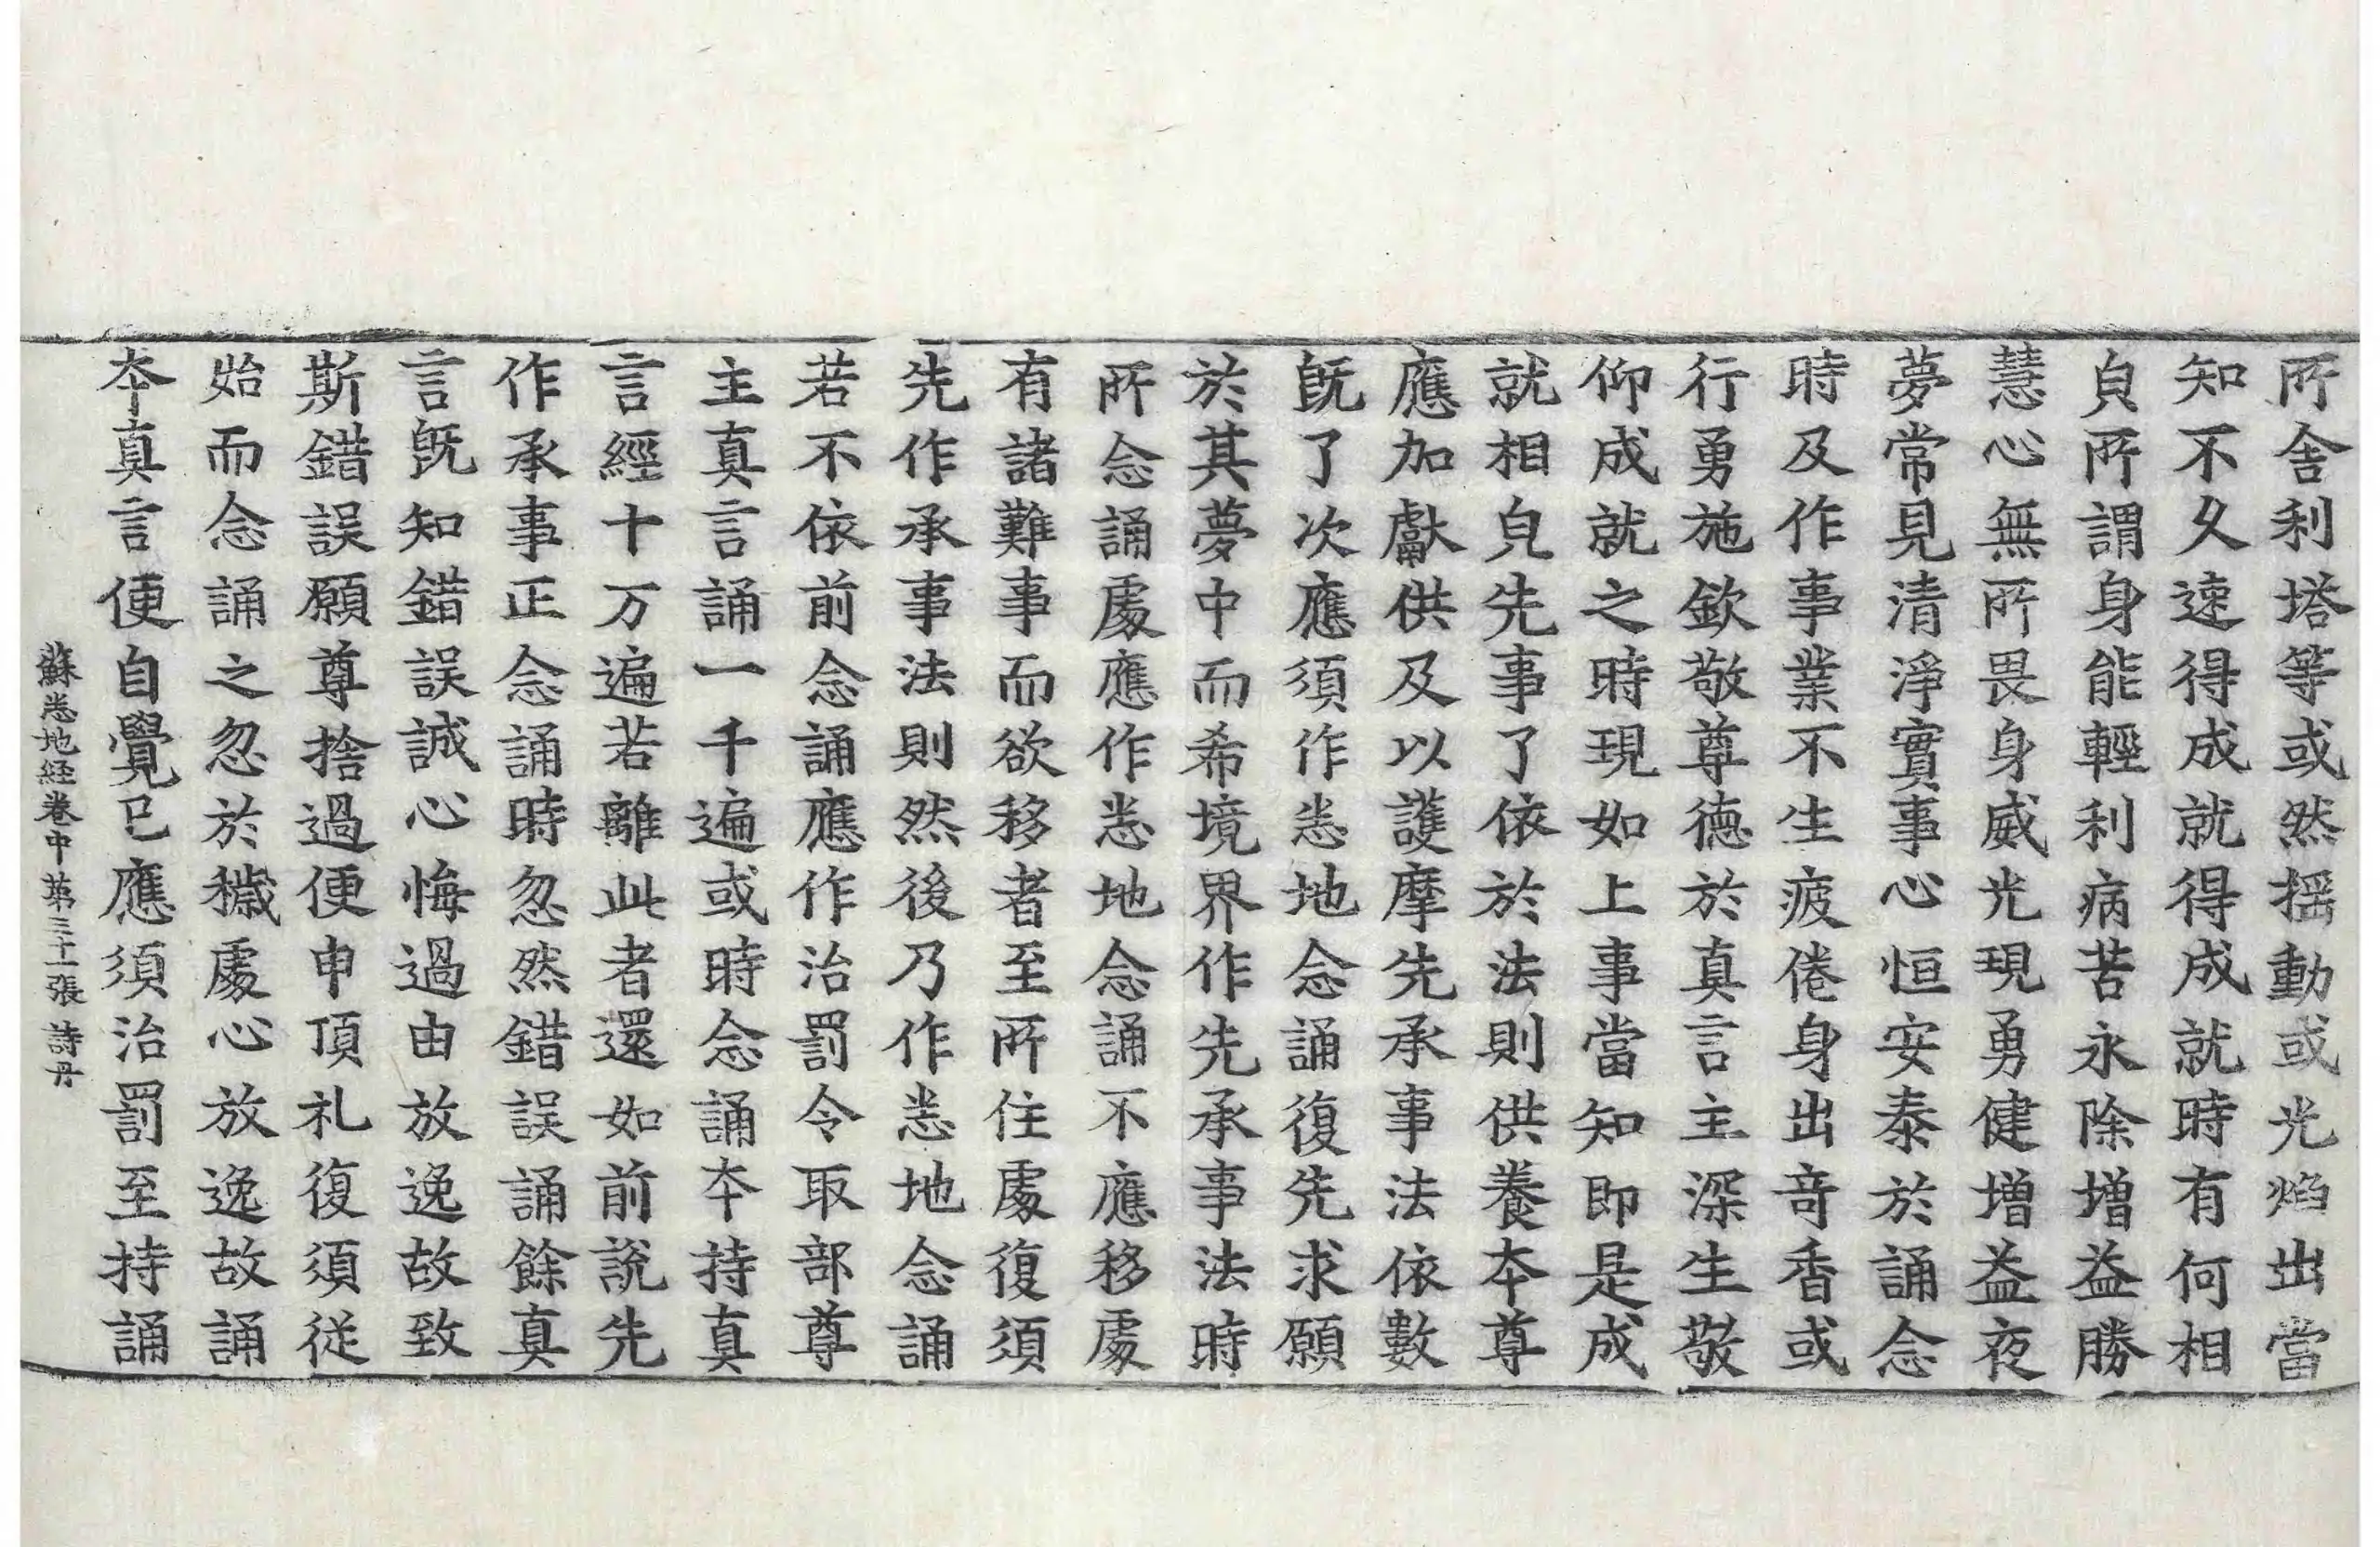 所舍利塔等或然揺動或光焰出當
知不久速得成就得成就時有何相
皃所謂身能輕利病苦永除增益勝
慧心無所畏身威光現勇健增益夜
夢常見清淨實事心恒安泰於誦念
時及作事業不生疲倦身出奇香或
行勇施欽敬尊德於真言主深生敬
仰成就之時現如上事當知即是成
就相皃先事了依於法則供養本尊
應加獻供及以護摩先承事法依數
旣了次應須作悉地念誦復先求願
於其夢中而希境界作先承事法時
所念誦處應作悉地念誦不應移處
有諸難事而欲移者至所住處復須
先作承事法則然後乃作悉地念誦
若不依前念誦應作治罰令取部尊
主真言誦一千遍或時念誦本持真
言經十万遍若離此者還如前說先
作承事正念誦時忽然錯誤誦餘真
言旣知錯誤誠心悔過由放逸故致
斯錯誤願尊捨過便申頂礼復須從
始而念誦之忽於穢處心放逸故誦
本真言便自覺已應須治罰至持誦
蘇悉地経卷中 苐三十一張 詩丹